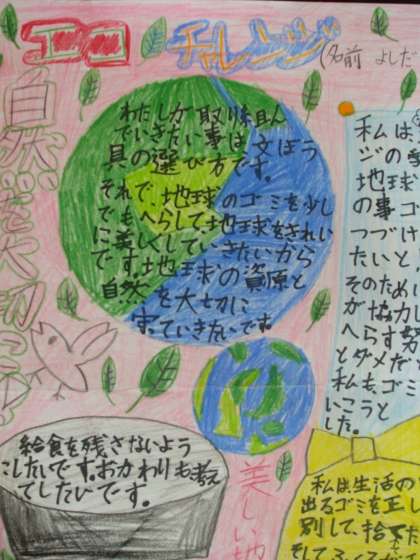 エコチャレンジ
(名前 よしだ
自然を大切に
わたしが取り組ん
でいきたい事は、文ぼう
具の選び方です。
それで、地球のゴミを少し
でもへらして地球をきれい
に美しくしていきたいから
です。地球の資原と
自然を大切に
守っていきたいです。
私は
ジの
地球
の事
つづけ
たいと
そのため
が協力し
へらす努
とダメだ
私もゴミ
いこうと
した。
給食を残さないよう
にしたいです。おかわりも考え
てしたいです。
美しい地
私は、生活の
出るゴミを正し
別して、拾
そして